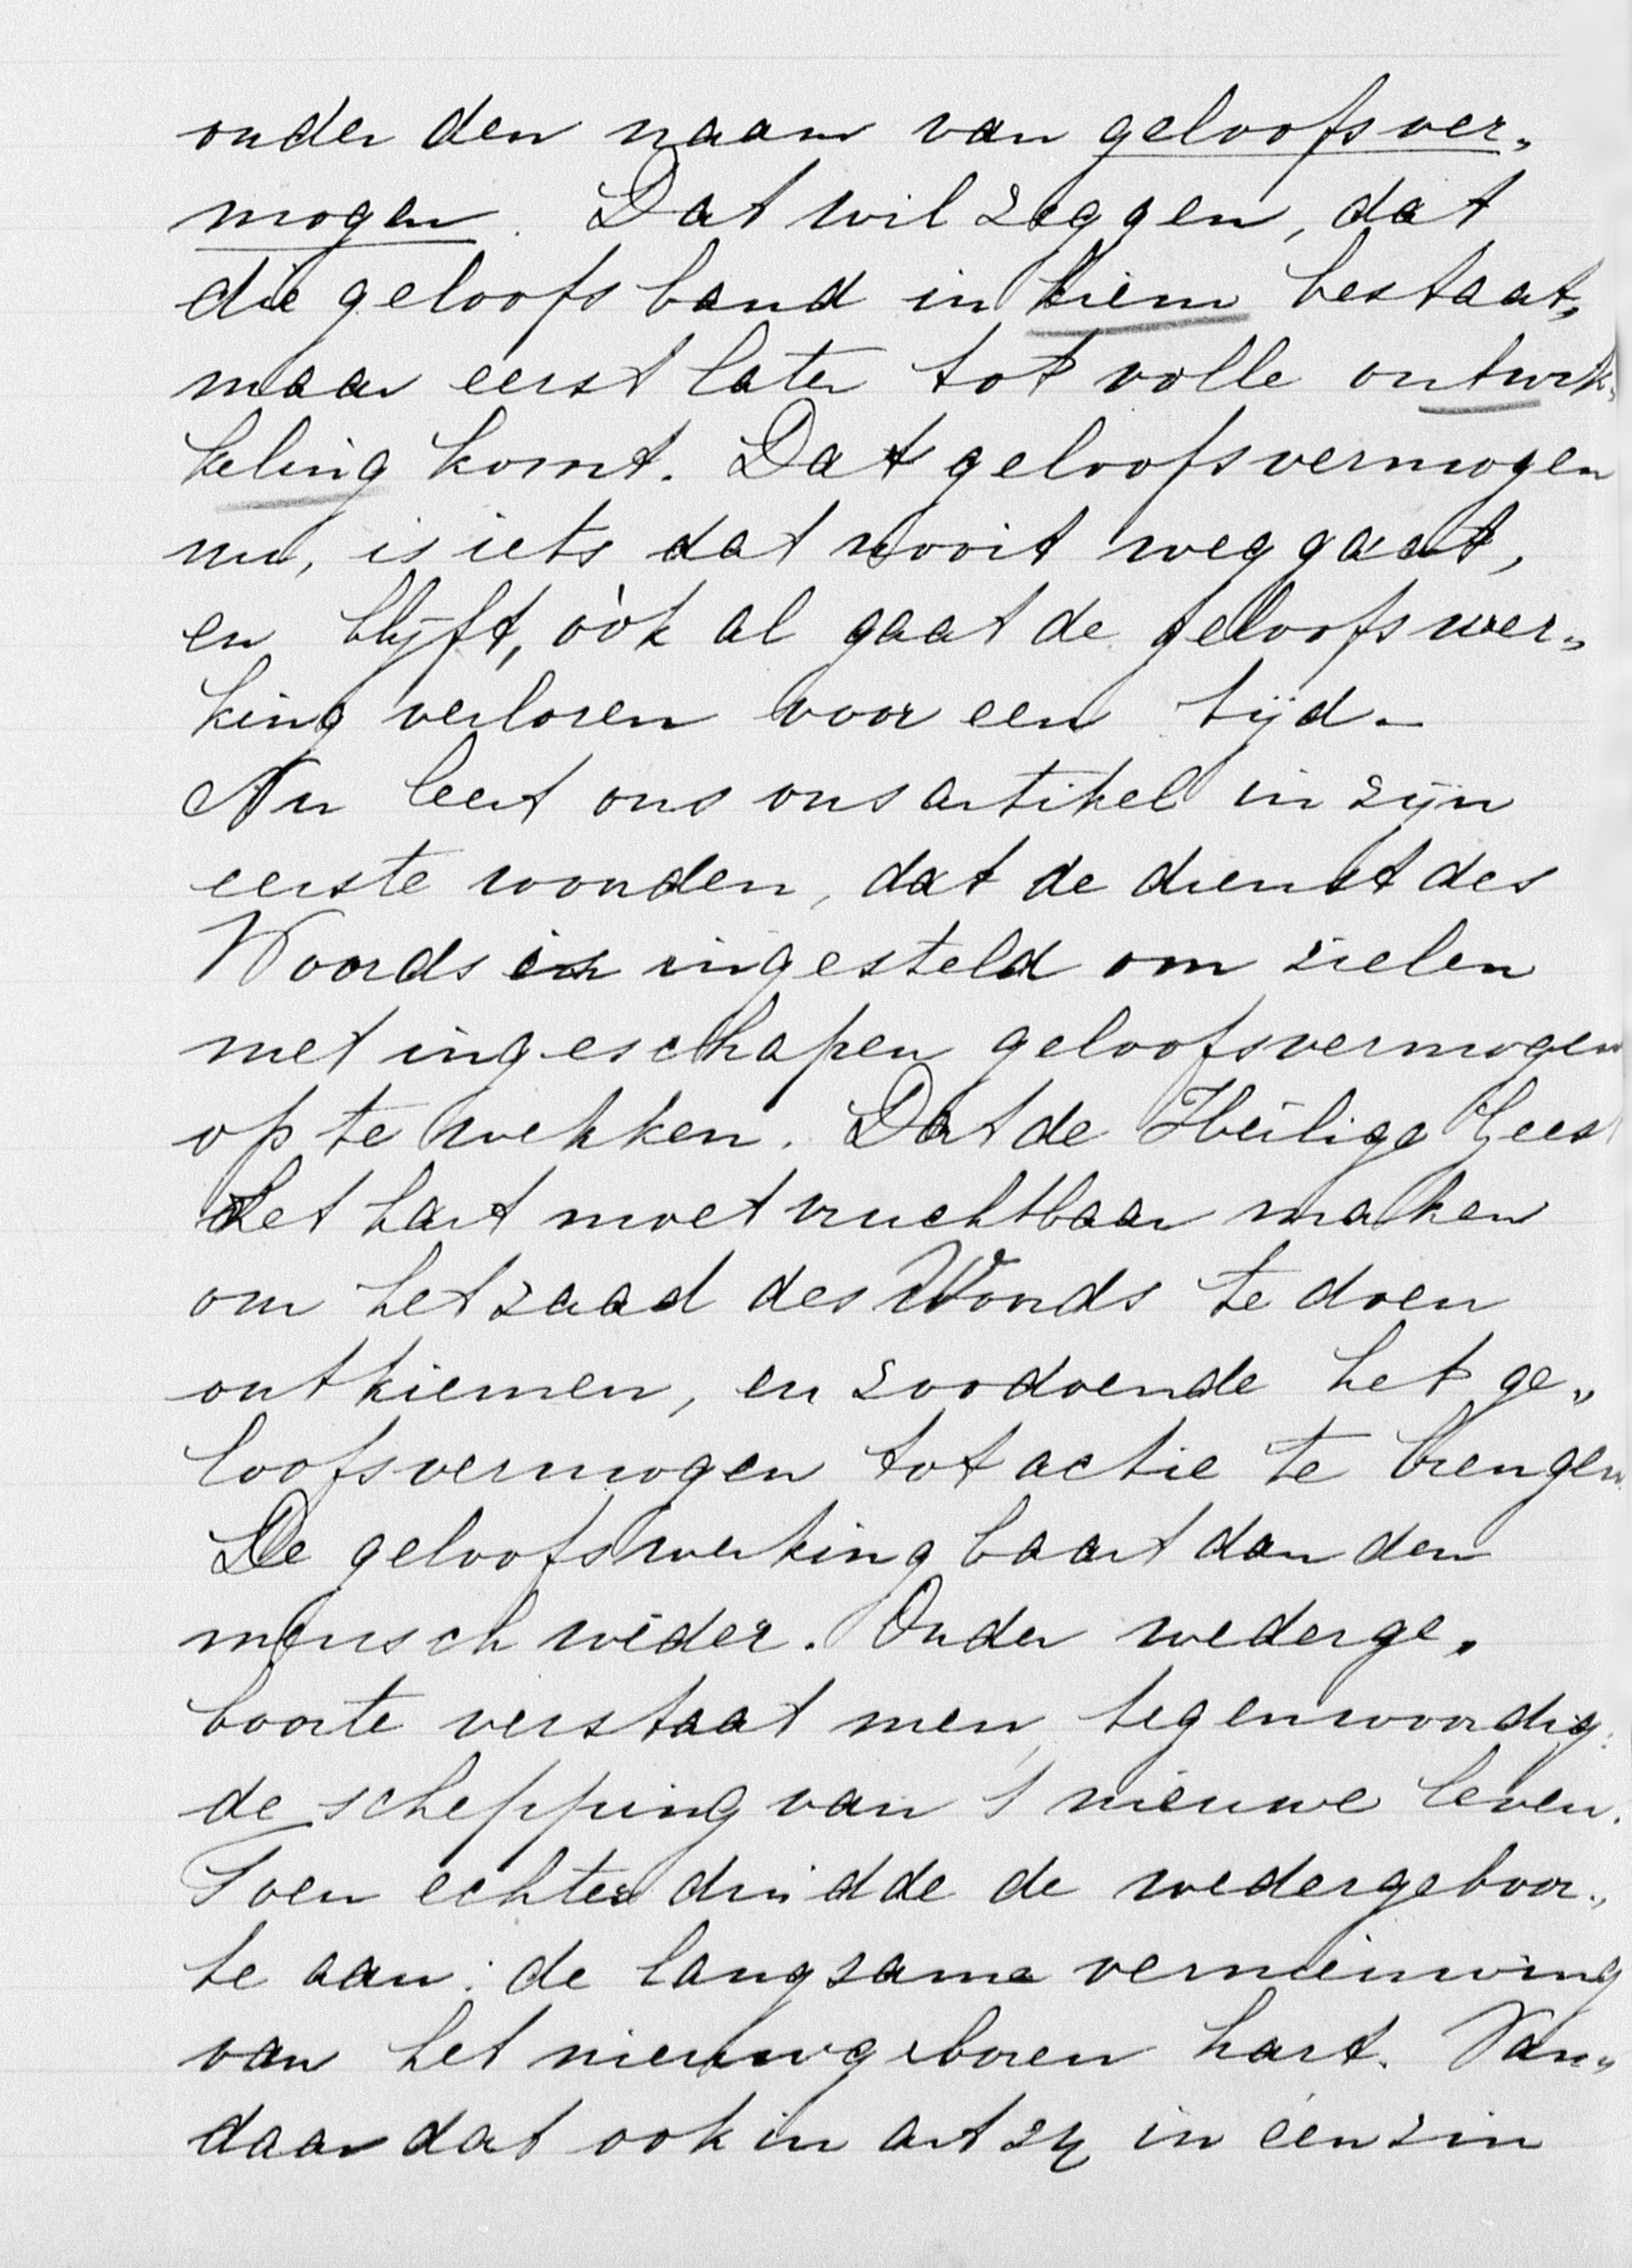 onder den naam van geloofsver„
mogen. Dat wil zeggen, dat
die geloofsband in kiem bestaat„
maar eerst later tot volle ontwik„
keling komt. Dat geloofsvermogen
nu, is iets dat nooit weggaat,
en blijft, òòk al gaat de geloofswer„
king verloren voor een tijd.
Nu leert ons ons artikel in zijn
eerste woorden, dat de dienst des
Woords is ingesteld om zielen
met ingeschapen geloofsvermogen
op te wekken. Dat de Heilige Geest
het hart moet vruchtbaar maken
om het zaad des Woords te doen
ontkiemen, en zoodoende het ge„
loofsvermogen tot actie te brengen.
De geloofswerking baart dan den
mensch wéder. Onder wederge„
boorte verstaat men tegenwoordig:
de schepping van 't nieuwe leven.
Toen echter duidde de wedergeboor„
te aan: de langzame vernieuwing
van het nieuwgeboren hart. Van„
daar dat ook in art 24 in één zin